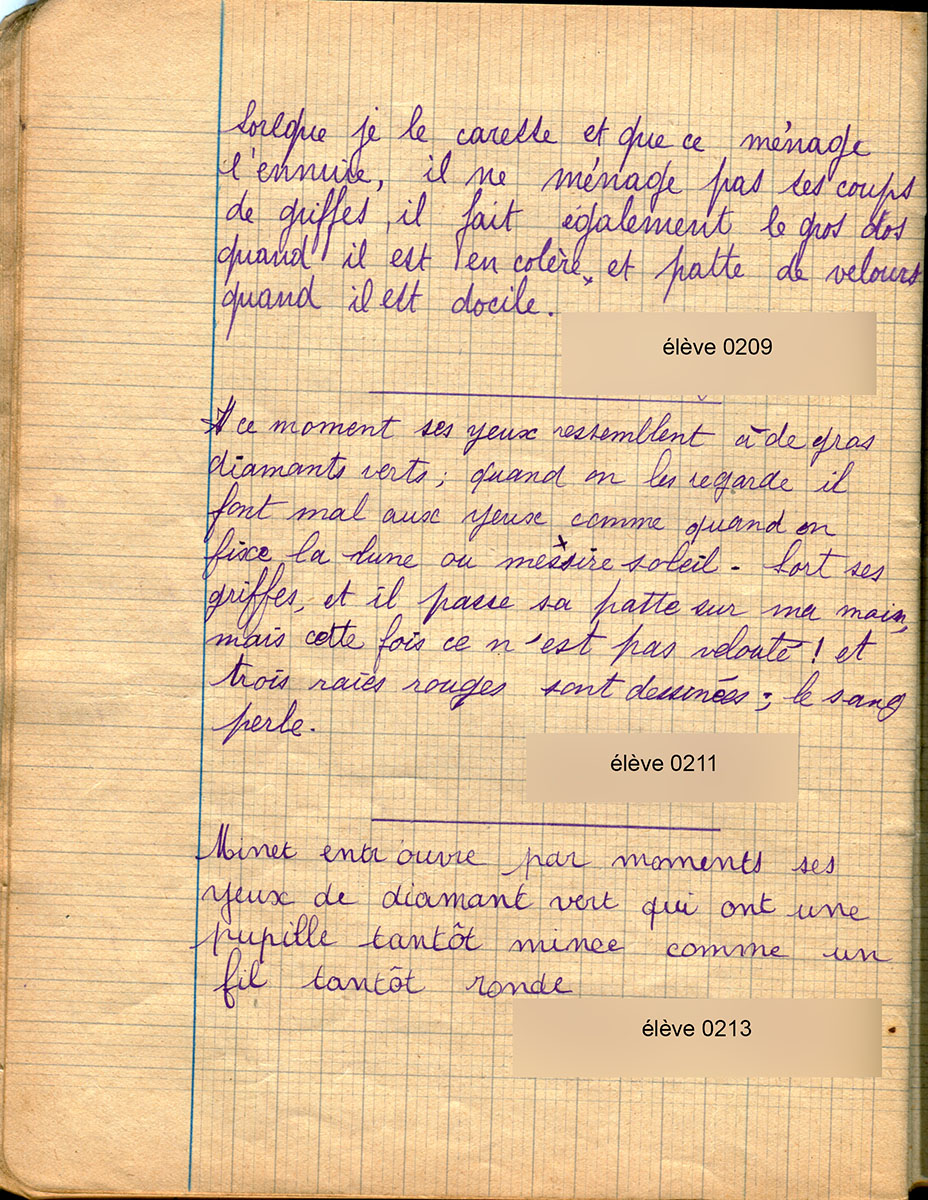 Lorsque je le caresse et que ce ménage
l'ennuie, il ne ménage pas ses coups
de griffes, il fait également le gros dos
quand il est en colère, et patte de velours
quand il est docile.
élève 0209
A ce moment ses yeux ressemblent à de gros
diamants verts ; quand on les regarde il
font mal aux yeux comme quand on
fixe la lune ou messire soleil. Sort ses
griffes, et il passe sa patte sur ma main,
mais cette fois ce n'est pas velouté ! et
trois raies rouges sont dessinées ; le sang
perle.
élève 0211
Minet entr'ouvre par moments ses
yeux de diamant vert qui ont une
pupille tantôt mince comme un
fil tantôt ronde
élève 0213